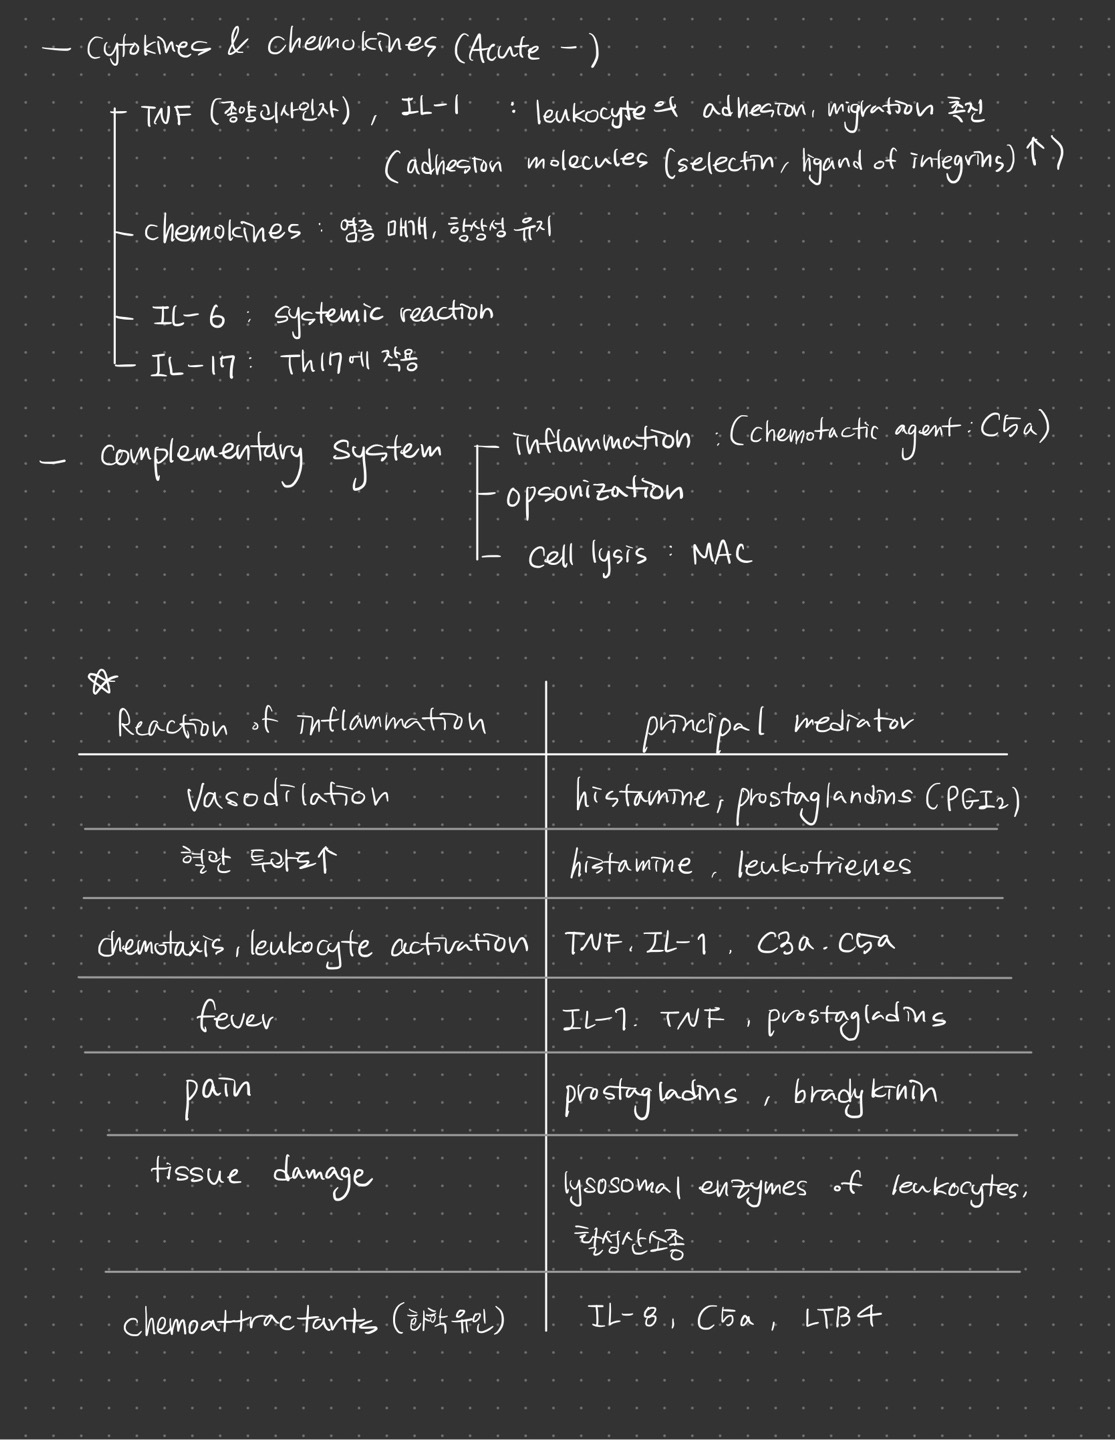 - Cytokines & chemokines (Acute -)
TNF (종양괴사인자), IL-1 : leukocyte의 adhesion, migration 촉진
(adhesion molecules (selectin, ligand of integrins) ↑)
chemokines : 염증 매개, 항상성 유지
IL-6 : systemic reaction
IL-17 : Th17에 작용
- complementary system
inflammation : (chemotactic agent : C5a)
opsonization
cell lysis : MAC
☆
Reaction of inflammation principal mediator
Vasodilation histamine, prostaglandins (PGI2)
혈관 투과도↑ histamine, leukotrienes
chemotaxis, leukocyte activation TNF. IL-1, C3a. C5a
fever IL-1. TNF, prostagladins
pain prostagladins, bradykinin
tissue damage lysosomal enzymes of leukocytes,
활성산소종
chemoattractants (화학유인) IL-8, C5a, LTB4